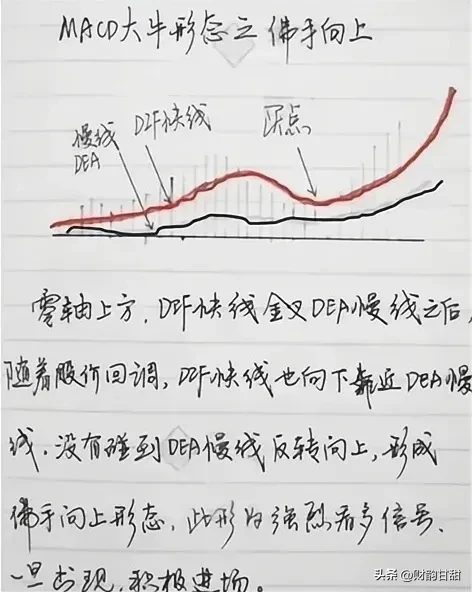 MACD大牛形态之佛手向上
慢线
DEA
DIF快线
买点
零轴上方，DIF快线金叉DEA慢线之后，
随着股价回调，DIF快线也向下靠近DEA慢
线，没有碰到DEA慢线反转向上，形成
佛手向上形态，此形为强烈看多信号，
一旦出现，积极进场。
头条 @财韵甘甜